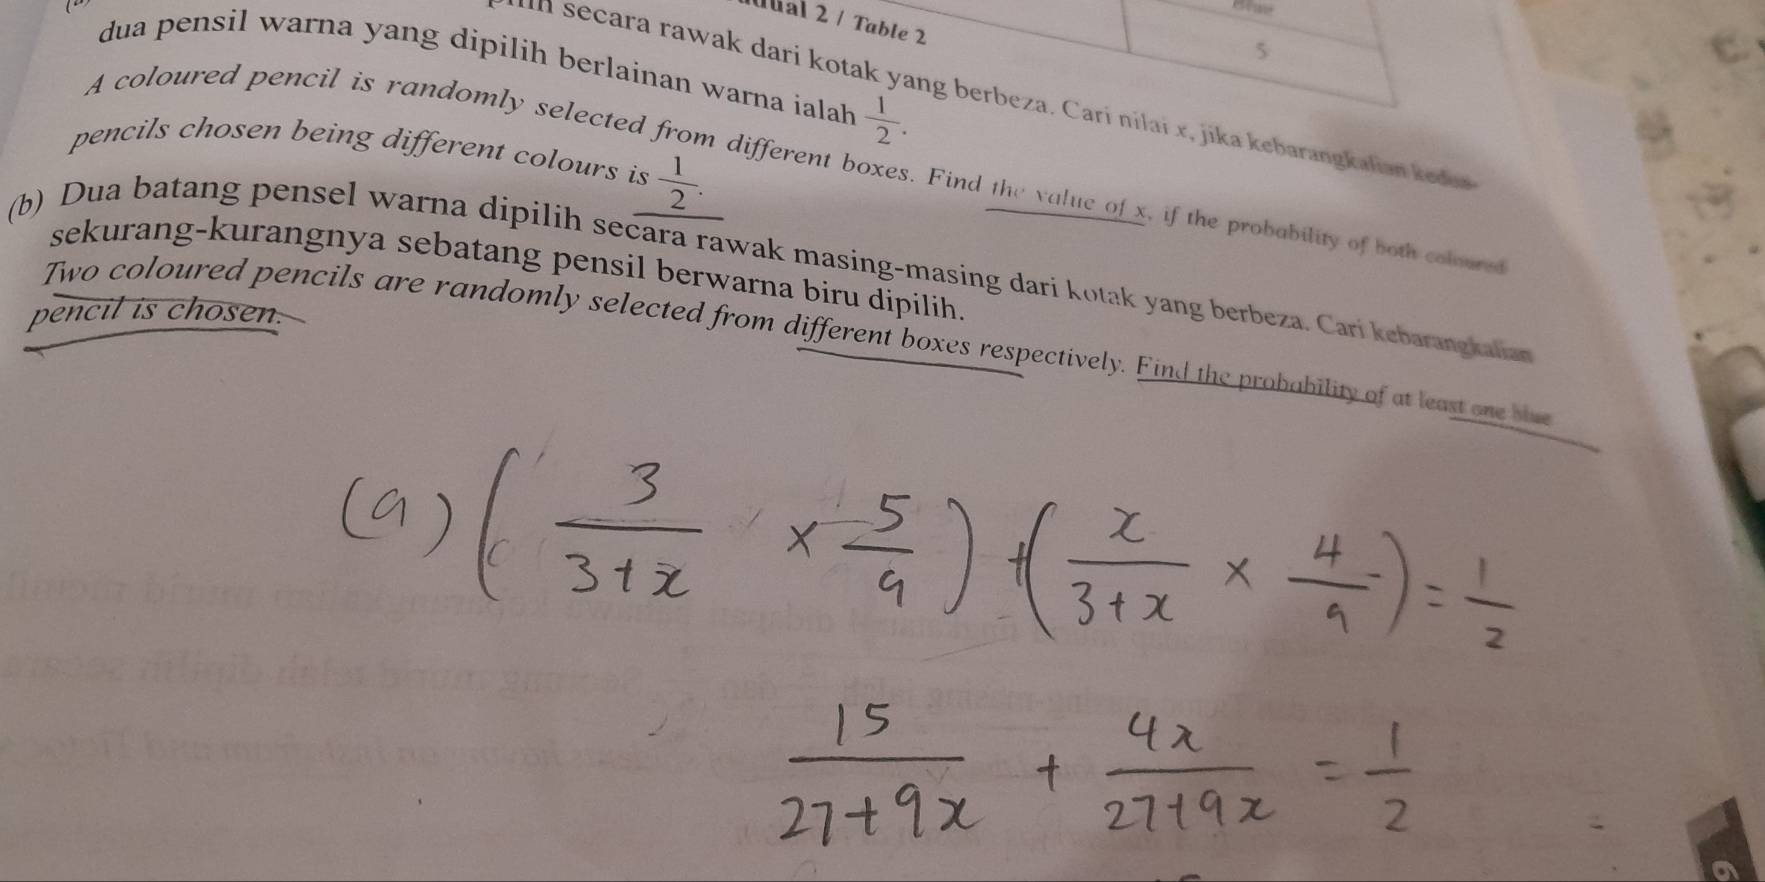 2 / Table 2
5
secara rawak dari kotak yang berbeza. Cari nilai x, jika kebarangkalian kedua-
dua pensil warna yang dipilih berlainan warna ialah 1/2.
A coloured pencil is randomly selected from different boxes. Find the value of x, if the probability of both coloured
pencils chosen being different colours is 1/2.
(b) Dua batang pensel warna dipilih secara rawak masing-masing dari kotak yang berbeza. Cari kebarangkalian
sekurang-kurangnya sebatang pensil berwarna biru dipilih.
Two coloured pencils are randomly selected from different boxes respectively. Find the probability of at least one blue
pencil is chosen.
(a) (3/(3+x) × 5/9) + (x/(3+x) × 4/9) = 1/2
15/(27+9x) + 4x/(27+9x) = 1/2
=